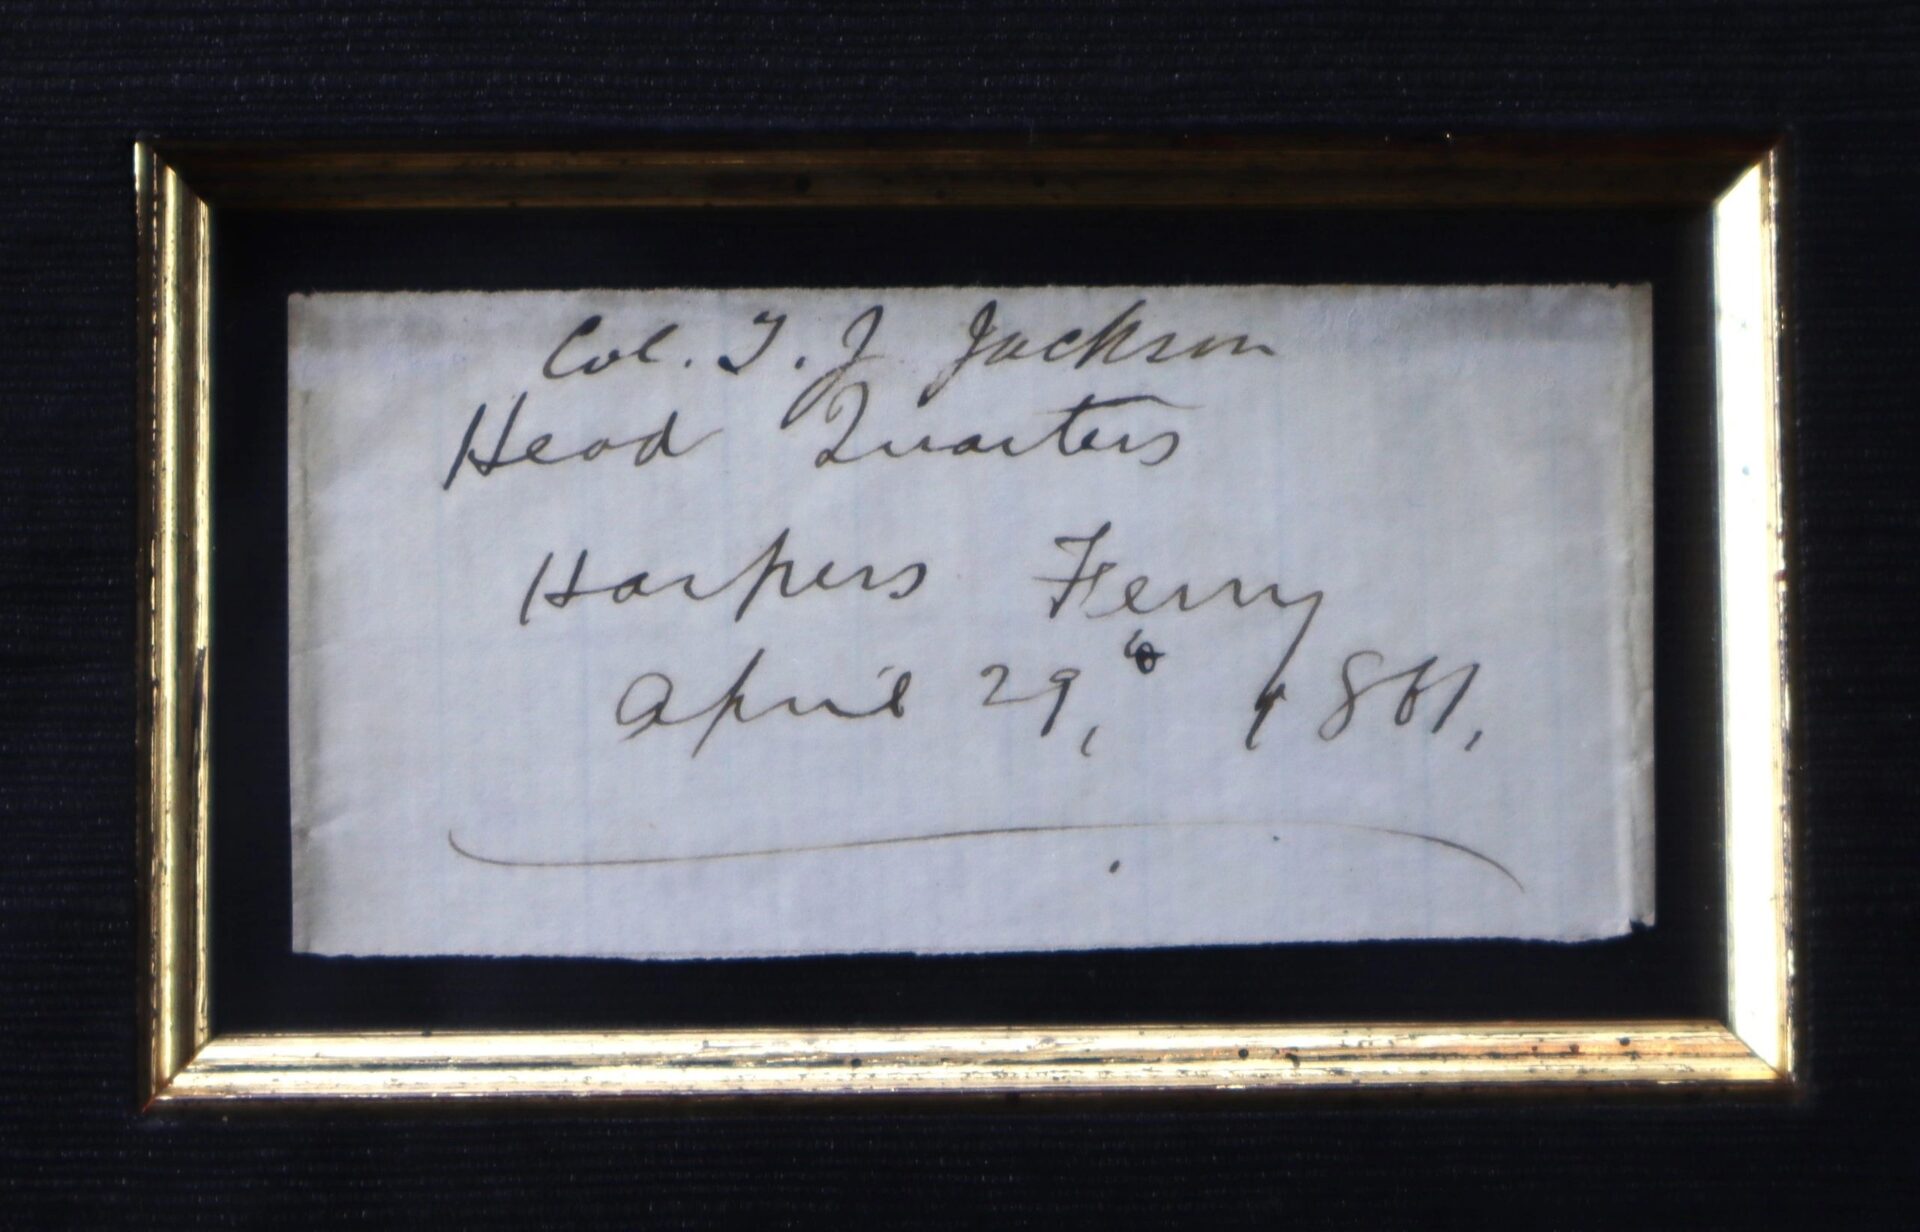 Col. T. J Jackson
Head Quarters
Harpers Ferry
April 29, 1861,